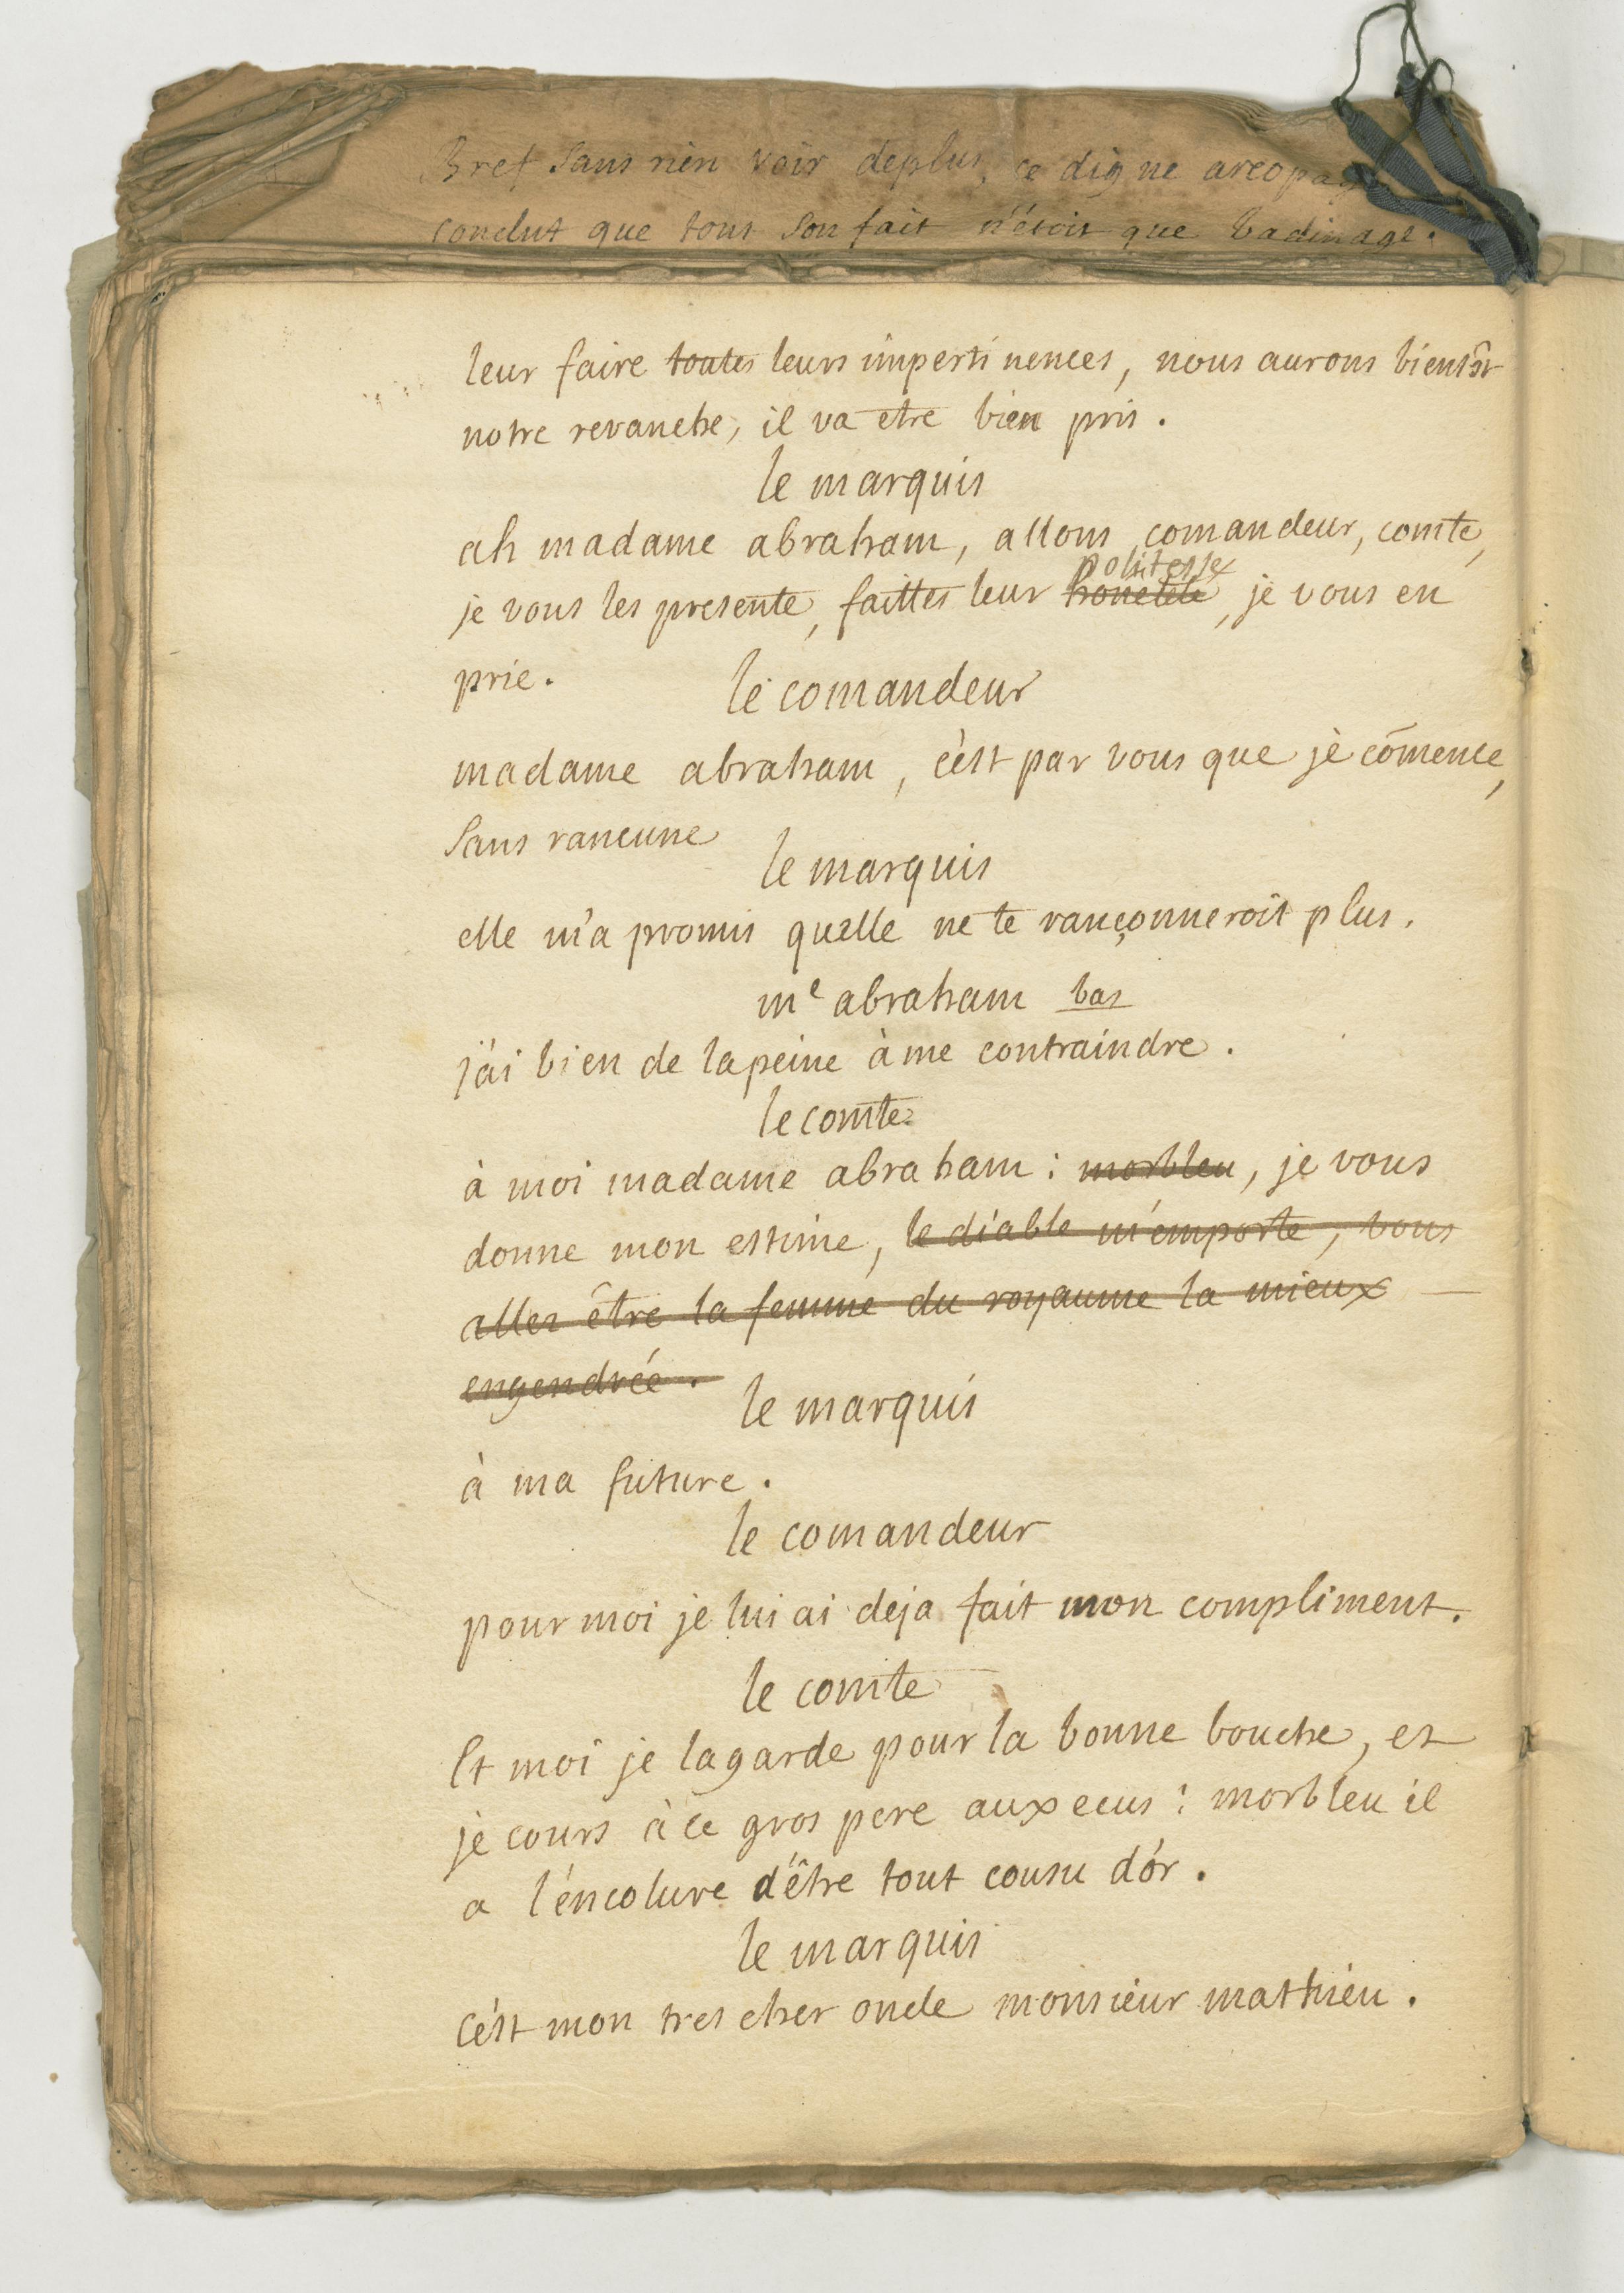 Bref sans rien voir deplus, ce digne areopage
conclut que tout son fait n'étoit que badinage.
leur faire toutes leurs impertinences, nous aurons bientôt
notre revanche, il va etre bien pris.
le marquis
ah madame abraham, allons comandeur, comte,
politesse
je vous les presente, faittes leur honêteté, je vous en
prie.
le comandeur
madame abraham, c'est par vous que je cōmence,
sans rancune
le marquis
elle m'a promis quelle ne te rançonneroit plus.
me abraham bas
j'ai bien de la peine à me contraindre.
le comte
à moi madame abraham : morbleu, je vous
donne mon estime, le diable m'emporte, vous
allez être la femme du royaume la mieux
engendrée.
le marquis
à ma future.
le comandeur
pour moi je lui ai deja fait mon compliment.
le comte
Et moi je la garde pour la bonne bouche, et
je cours à ce gros pere aux ecus : morbleu il
a l'encolure d'être tout cousu d'or.
le marquis
C'est mon tres cher oncle monsieur mathieu.